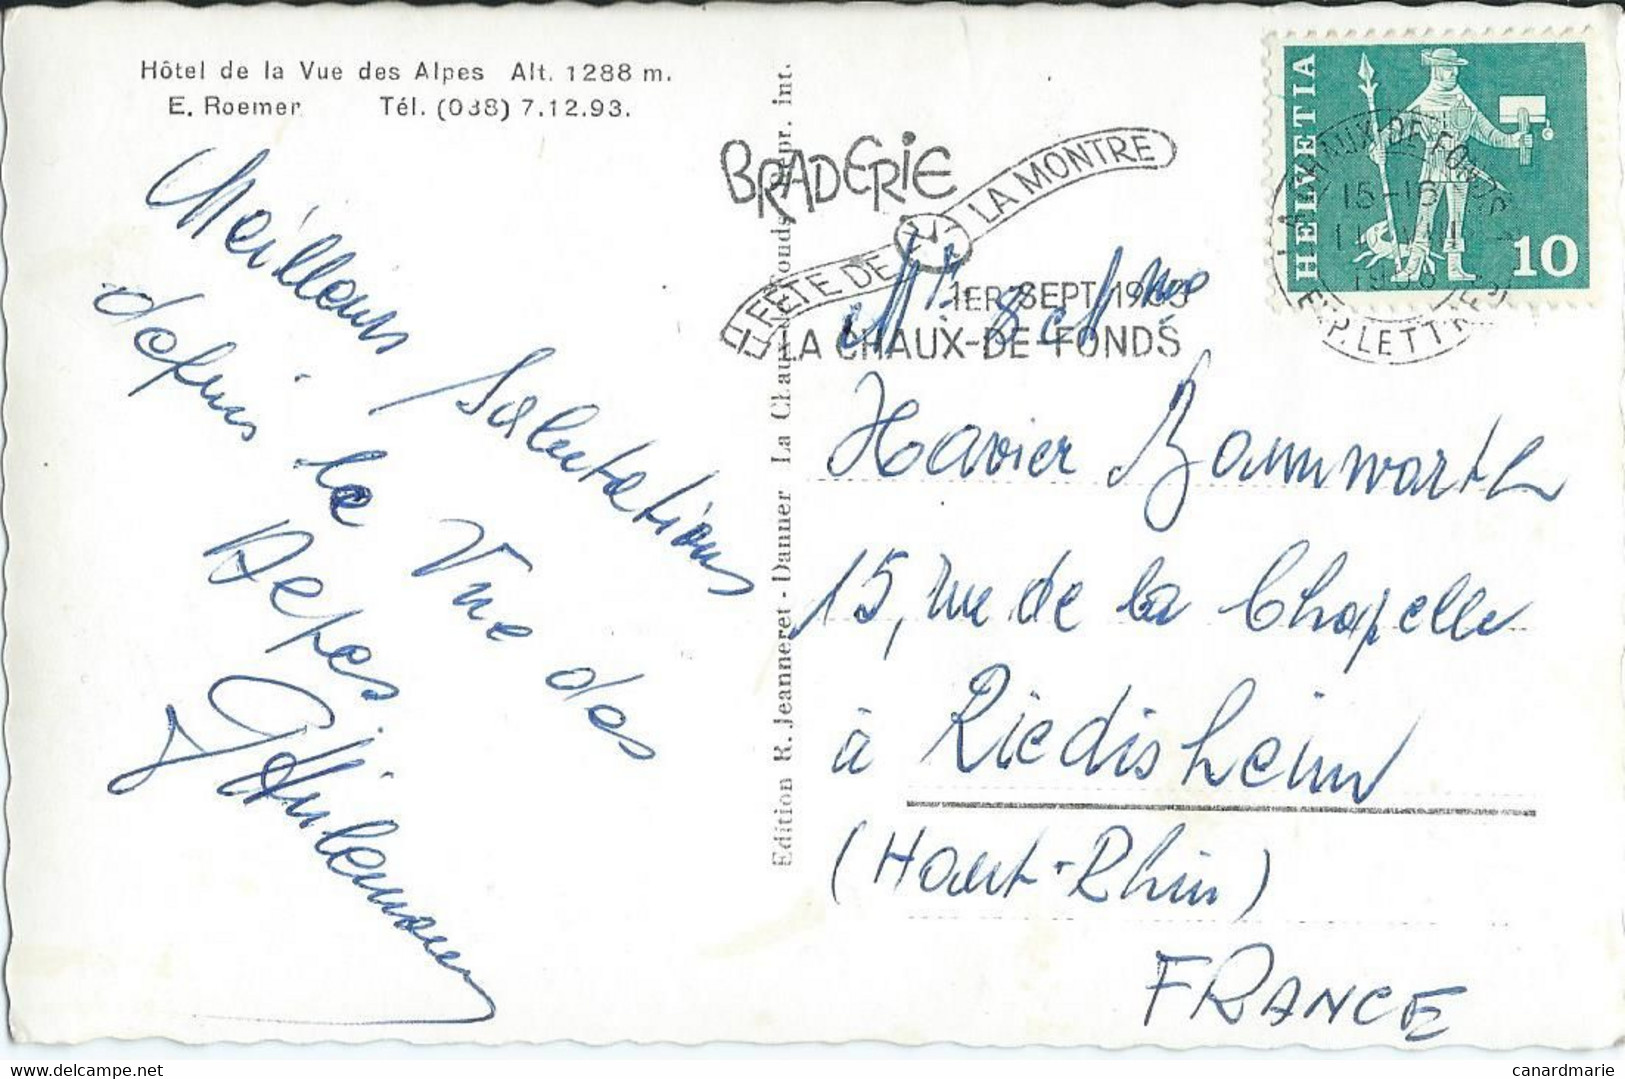 Hôtel de la Vue des Alpes Alt. 1288 m.
E. Roemer Tél. (038) 7.12.93.
Meilleurs Salutations
depuis la Vue des
Alpes
Edition R. Jeanneret-Danner La Chaux-de-Fonds Repr. int.
BRADERIE
ET FÊTE DE LA MONTRE
1ER SEPT. 1968
LA CHAUX-DE-FONDS
HELVETIA
10
LA CHAUX-DE-FONDS
15-16
EXP. LETTRES
Mr & Mme
Xavier Bannwarth
15, rue de la Chapelle
à Riedisheim
(Haut-Rhin)
FRANCE
delcampe.net
canardmarie